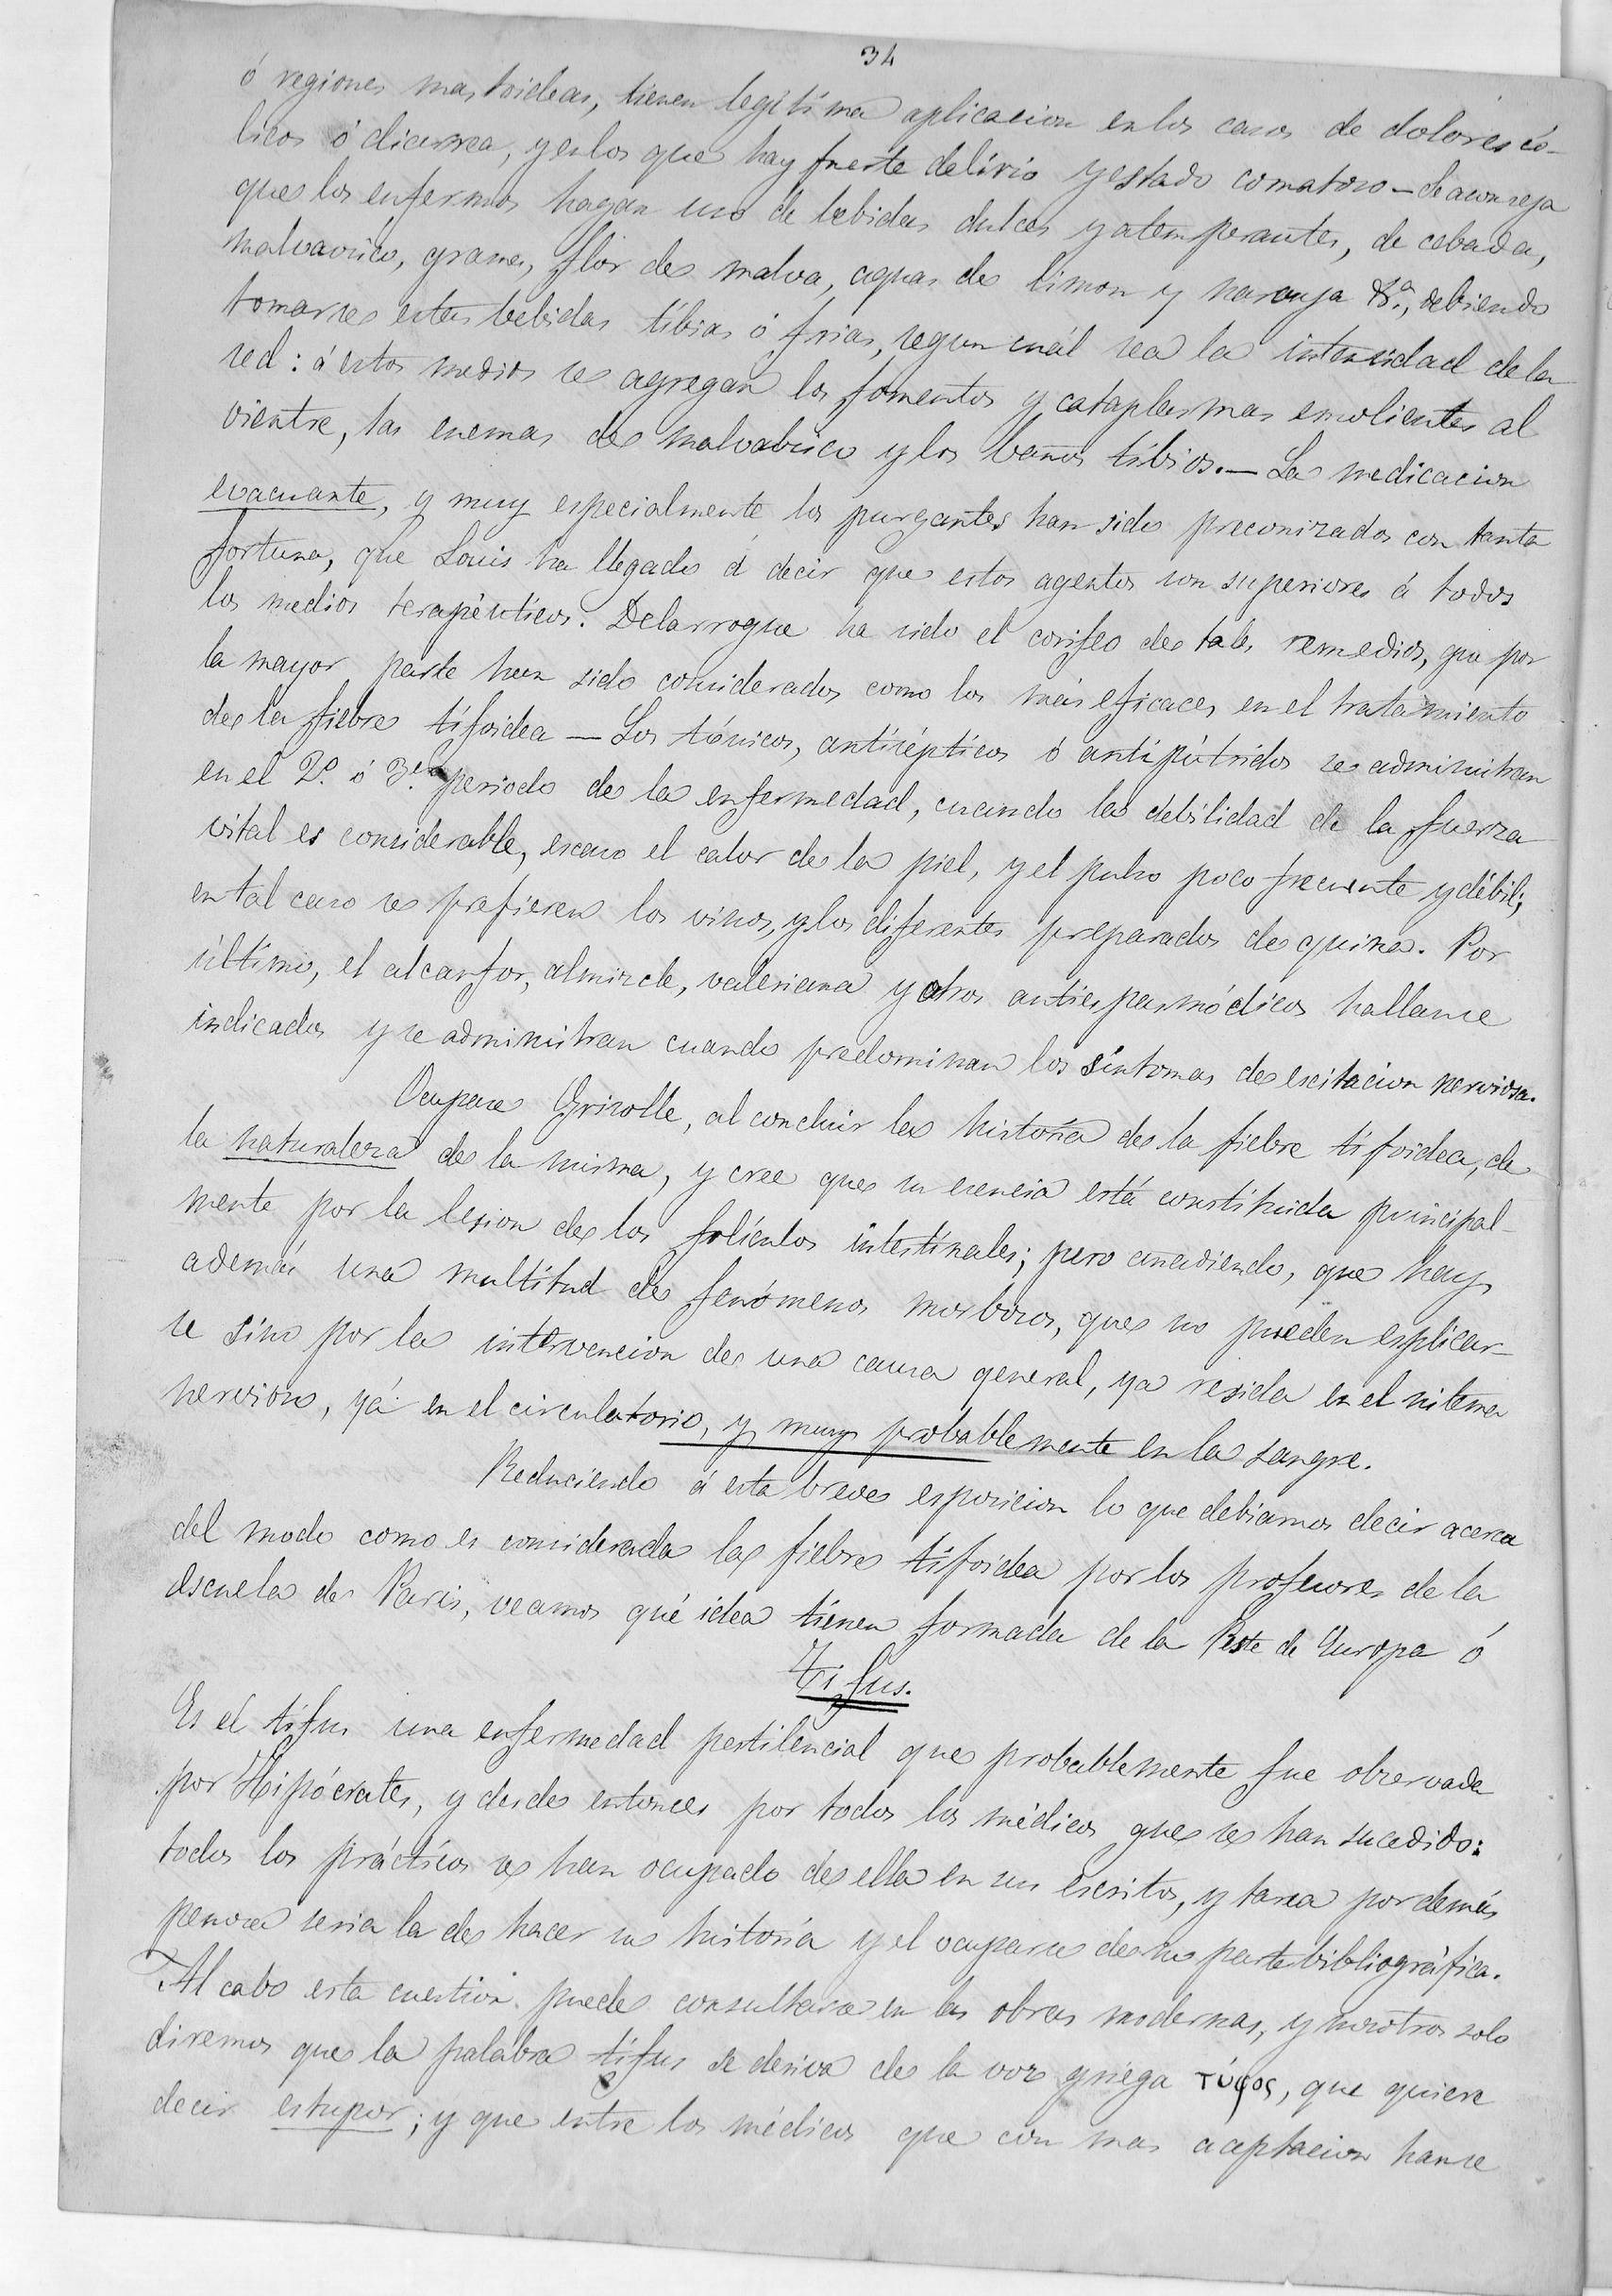 34
ó regiones mastoideas, tienen legítima aplicacion en los casos de dolores có-
licos ó diarrea, y en los que hay fuerte delírio y estado comatoso — Se aconseja
que los enfermos hagan uso de bebidas dulces y atemperantes, de cebada,
malvavisco, grama, flor de malva, aguas de limon y naranja &a., debiendo
tomarse estas bebidas tíbias ó frias, segun cuál sea la intensidad de la
sed: á estos medios se agregan los fomentos y cataplasmas emolientes al
vientre, las enemas de malvabisco y los baños tíbios. — La medicacion
evacuante, y muy especialmente los purgantes han sido preconizados con tanta
fortuna, que Louis ha llegado á decir que estos agentes son superiores á todos
los medios terapéuticos. Delarroque ha sido el corifeo de tales remedios, que por
la mayor parte han sido considerados como los más eficaces en el tratamiento
de la fiebre tifoidea — Los tónicos, antisépticos ó antipútridos se administran
en el 2.º ó 3.er periodo de la enfermedad, cuando la debilidad de la fuerza
vital es considerable, escaso el calor de la piel, y el pulso poco frecuente y débil;
en tal caso se prefieren los vinos, y los diferentes preparados de quina. Por
último, el alcanfor, almizcle, valeriana y otros antiespasmódicos hallanse
indicados y se administran cuando predominan los síntomas de escitacion nerviosa.
Ocupase Grisolle, al concluir la história de la fiebre tifoidea, de
la naturaleza de la misma, y cree que su esencia está constituida principal-
mente por la lesion de los folículos intestinales; pero añadiendo, que hay
además una multitud de fenómenos morbosos, que no pueden esplicar-
se sino por la intervencion de una causa general, ya resida en el sistema
nervioso, yá en el circulatorio, y muy probablemente en la sangre.
Reduciendo á esta breve esposicion lo que debiamos decir acerca
del modo como es considerada la fiebre tifoidea por los profesores de la
escuela de Paris, veamos qué idea tienen formada de la Peste de Europa ó
Tifus.
Es el tífus una enfermedad pestilencial que probablemente fue observada
por Hipócrates, y desde entonces por todos los médicos que se han sucedido:
todos los prácticos se han ocupado de ella en sus escritos, y tarea por demás
penosa seria la de hacer su história y el ocuparse de su parte bibliográfica.
Al cabo esta cuestion puede consultarse en las obras modernas, y nosotros solo
diremos que la palabra tífus se deriva de la voz griega τύφος, que quiere
decir estupor; y que entre los médicos que con mas aceptacion hanse